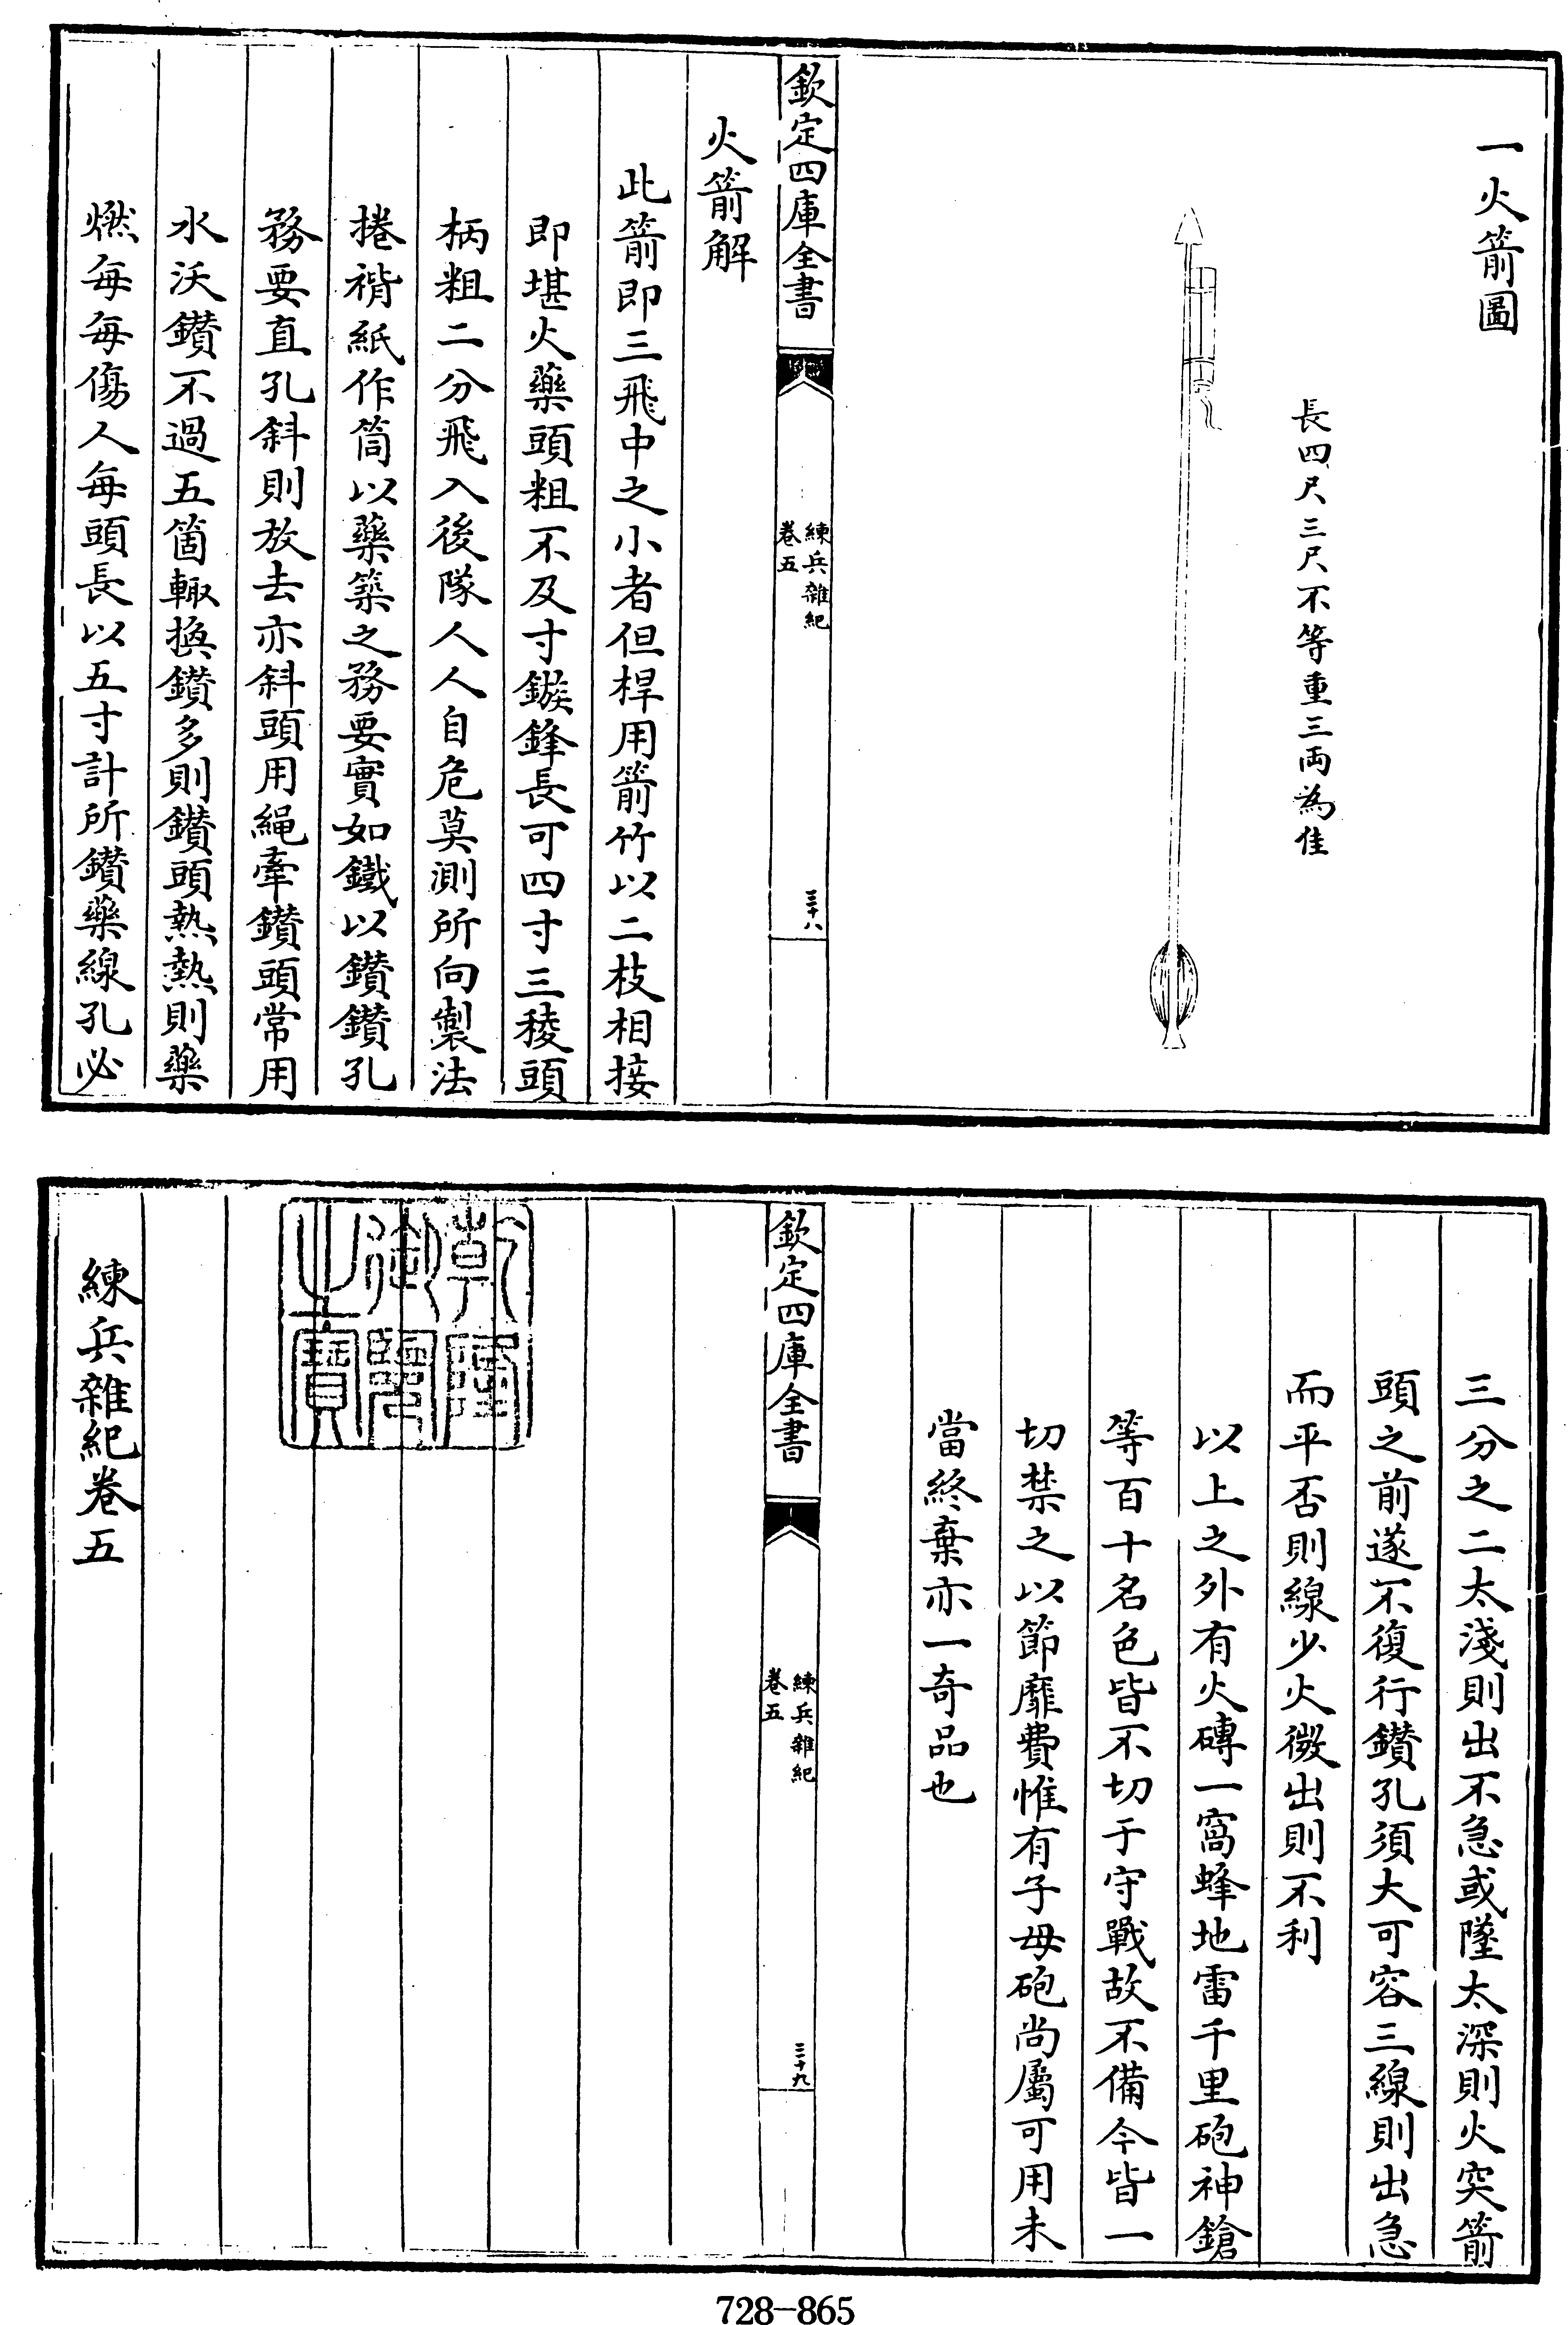 一火箭圖
長四尺三尺不等重三兩為佳
欽定四庫全書
練兵雜紀
卷五
三十八
火箭解
此箭即三飛中之小者但桿用箭竹以二枝相接
即堪火藥頭粗不及寸鏃鋒長可四寸三稜頭
柄粗二分飛入後隊人人自危莫測所向製法
捲褙紙作筒以藥築之務要實如鐵以鑚鑚孔
務要直孔斜則放去亦斜頭用繩牽鑚頭常用
水沃鑚不過五箇輙換鑚多則鑚頭熱熱則藥
燃每每傷人每頭長以五寸計所鑚藥線孔必
三分之二太淺則出不急或墜太深則火突箭
頭之前遂不復行鑚孔須大可容三線則出急
而平否則線少火微出則不利
以上之外有火磚一窩蜂地雷千里砲神鎗
等百十名色皆不切于守戰故不備今皆一
切禁之以節靡費惟有子母砲尚屬可用未
當終棄亦一奇品也
欽定四庫全書
練兵雜紀
卷五
三十九
乾隆御覽之寶
練兵雜紀卷五
728-865